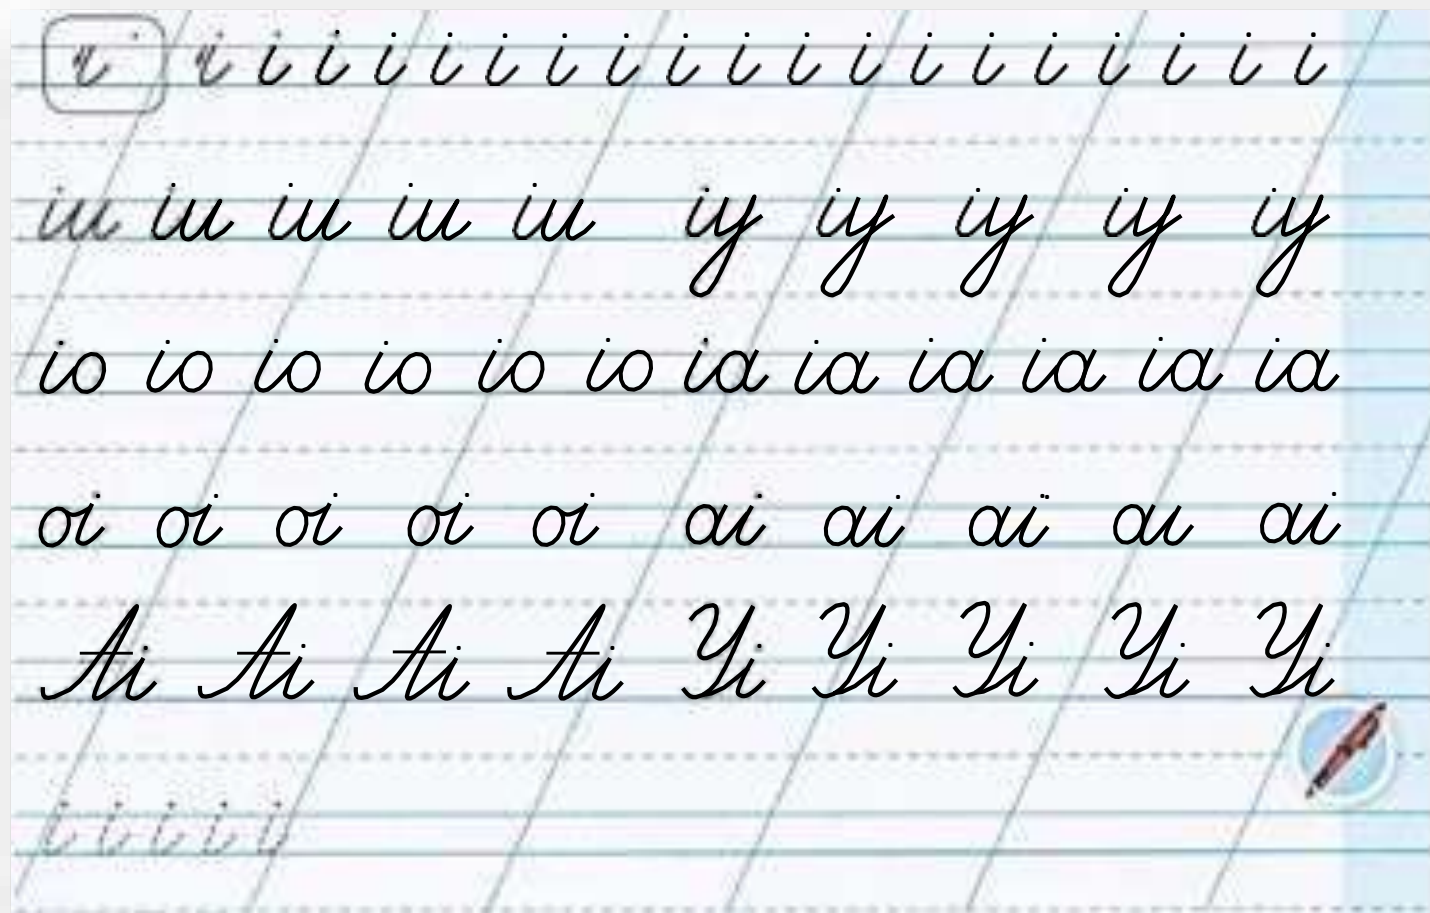 і і і і і і і і і і і і і і і і і і і і
іи іи іи іи іи іу іу іу іу іу
іо іо іо іо іо іо іа іа іа іа іа іа
оі оі оі оі оі аі аі аї аı аі
Аі Аі Аі Аі Уі Уі Уі Уі Уі
і і і і і